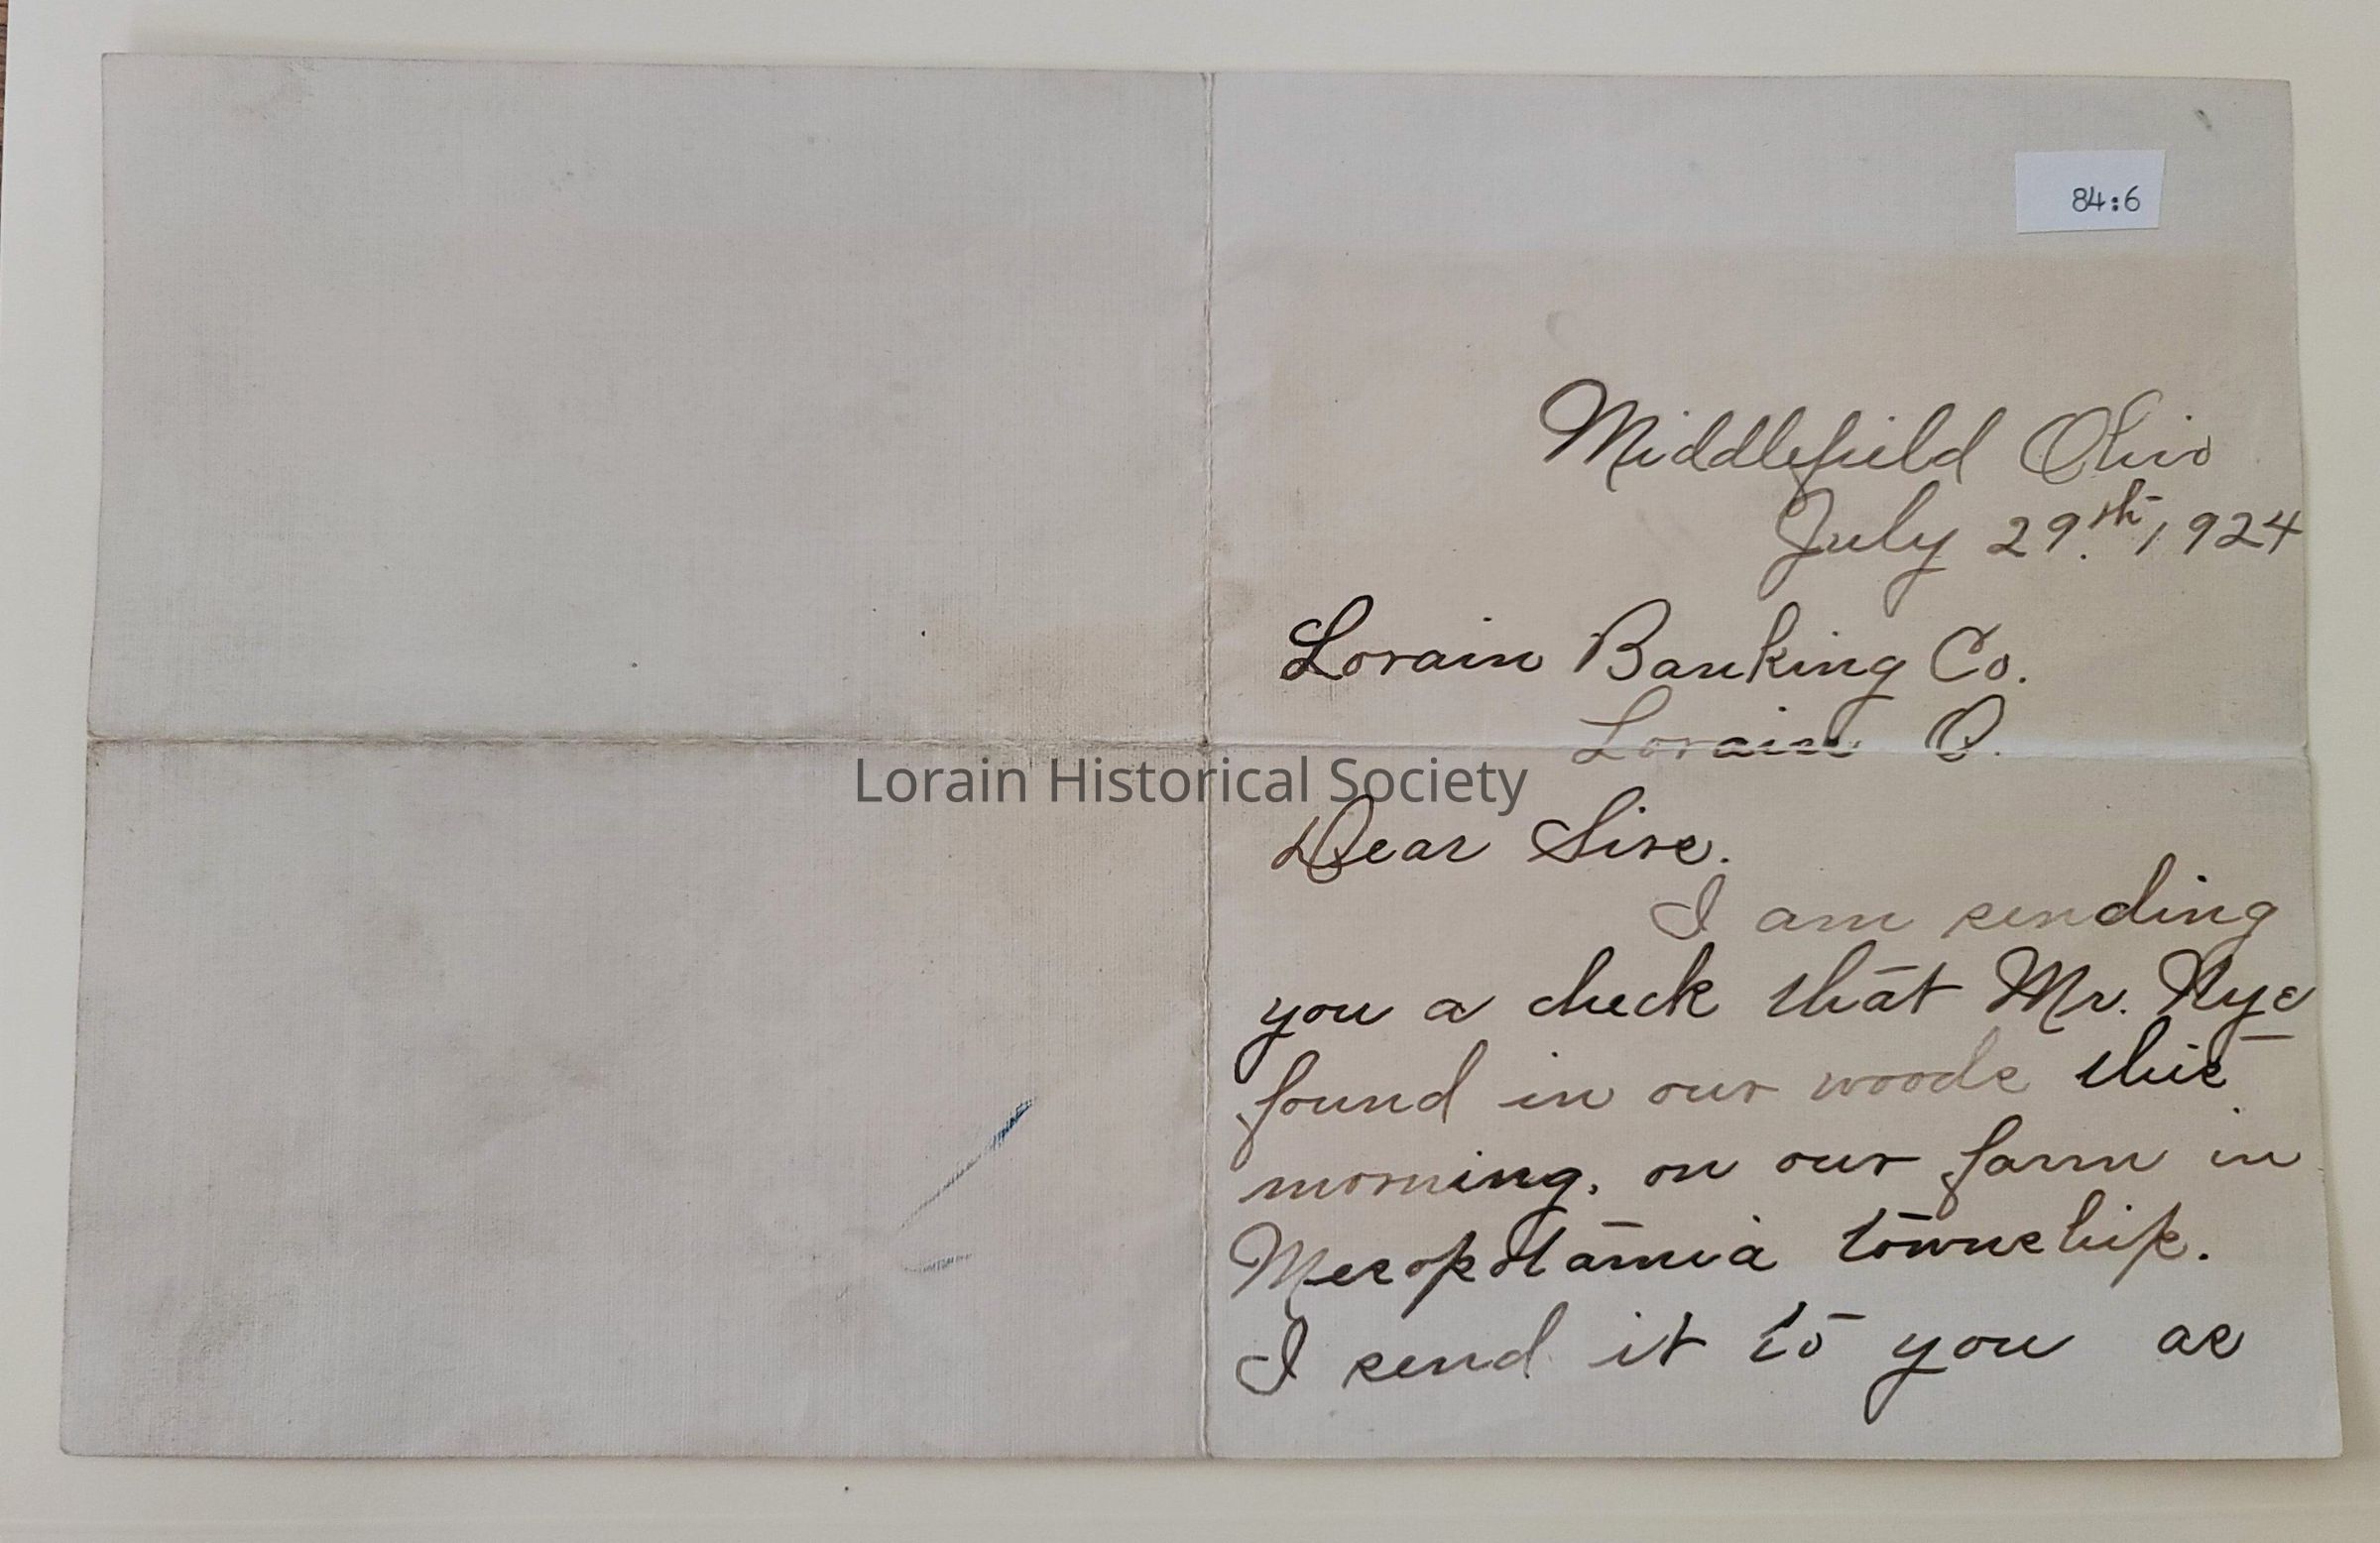 84:6
Middlefield Ohio
July 29th, 1924
Lorain Banking Co.
Lorain O.
Lorain Historical Society
Dear Sirs.
I am sending
you a check that Mr. Nye
found in our woods this
morning, on our farm in
Mesopotamia township.
I send it to you as